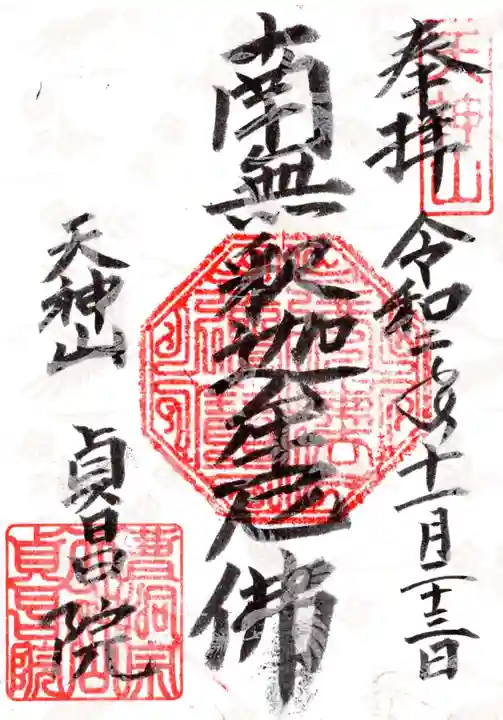 奉拝
天神山
令和二年十一月二十三日
南無釈迦牟尼佛
天神山
貞昌院
曹洞宗
貞昌院